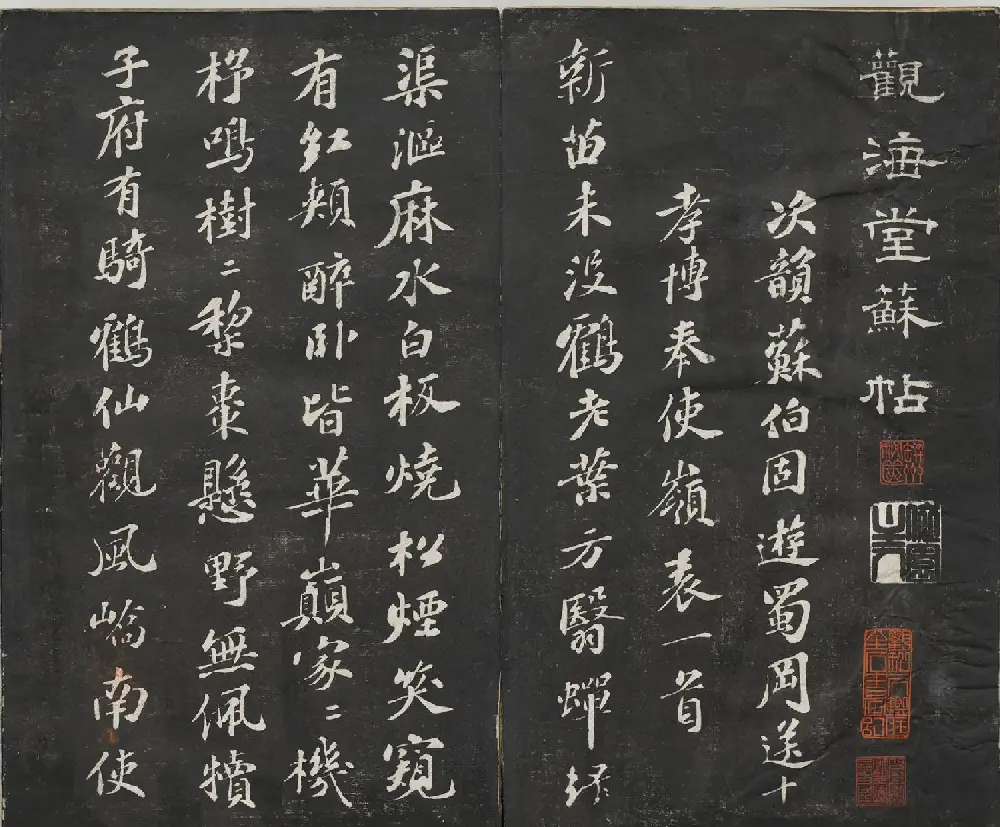 觀海堂蘇帖
次韻蘇伯固遊蜀岡送十
孝博奉使嶺表一首
新苗未沒鶴老葉方翳蟬綠
渠漚麻水白板燒松煙笑窺
有紅頰醉臥皆華顛家〻機
杼鳴樹〻黎棗懸野無佩犢
子府有騎鶴仙觀風嶠南使